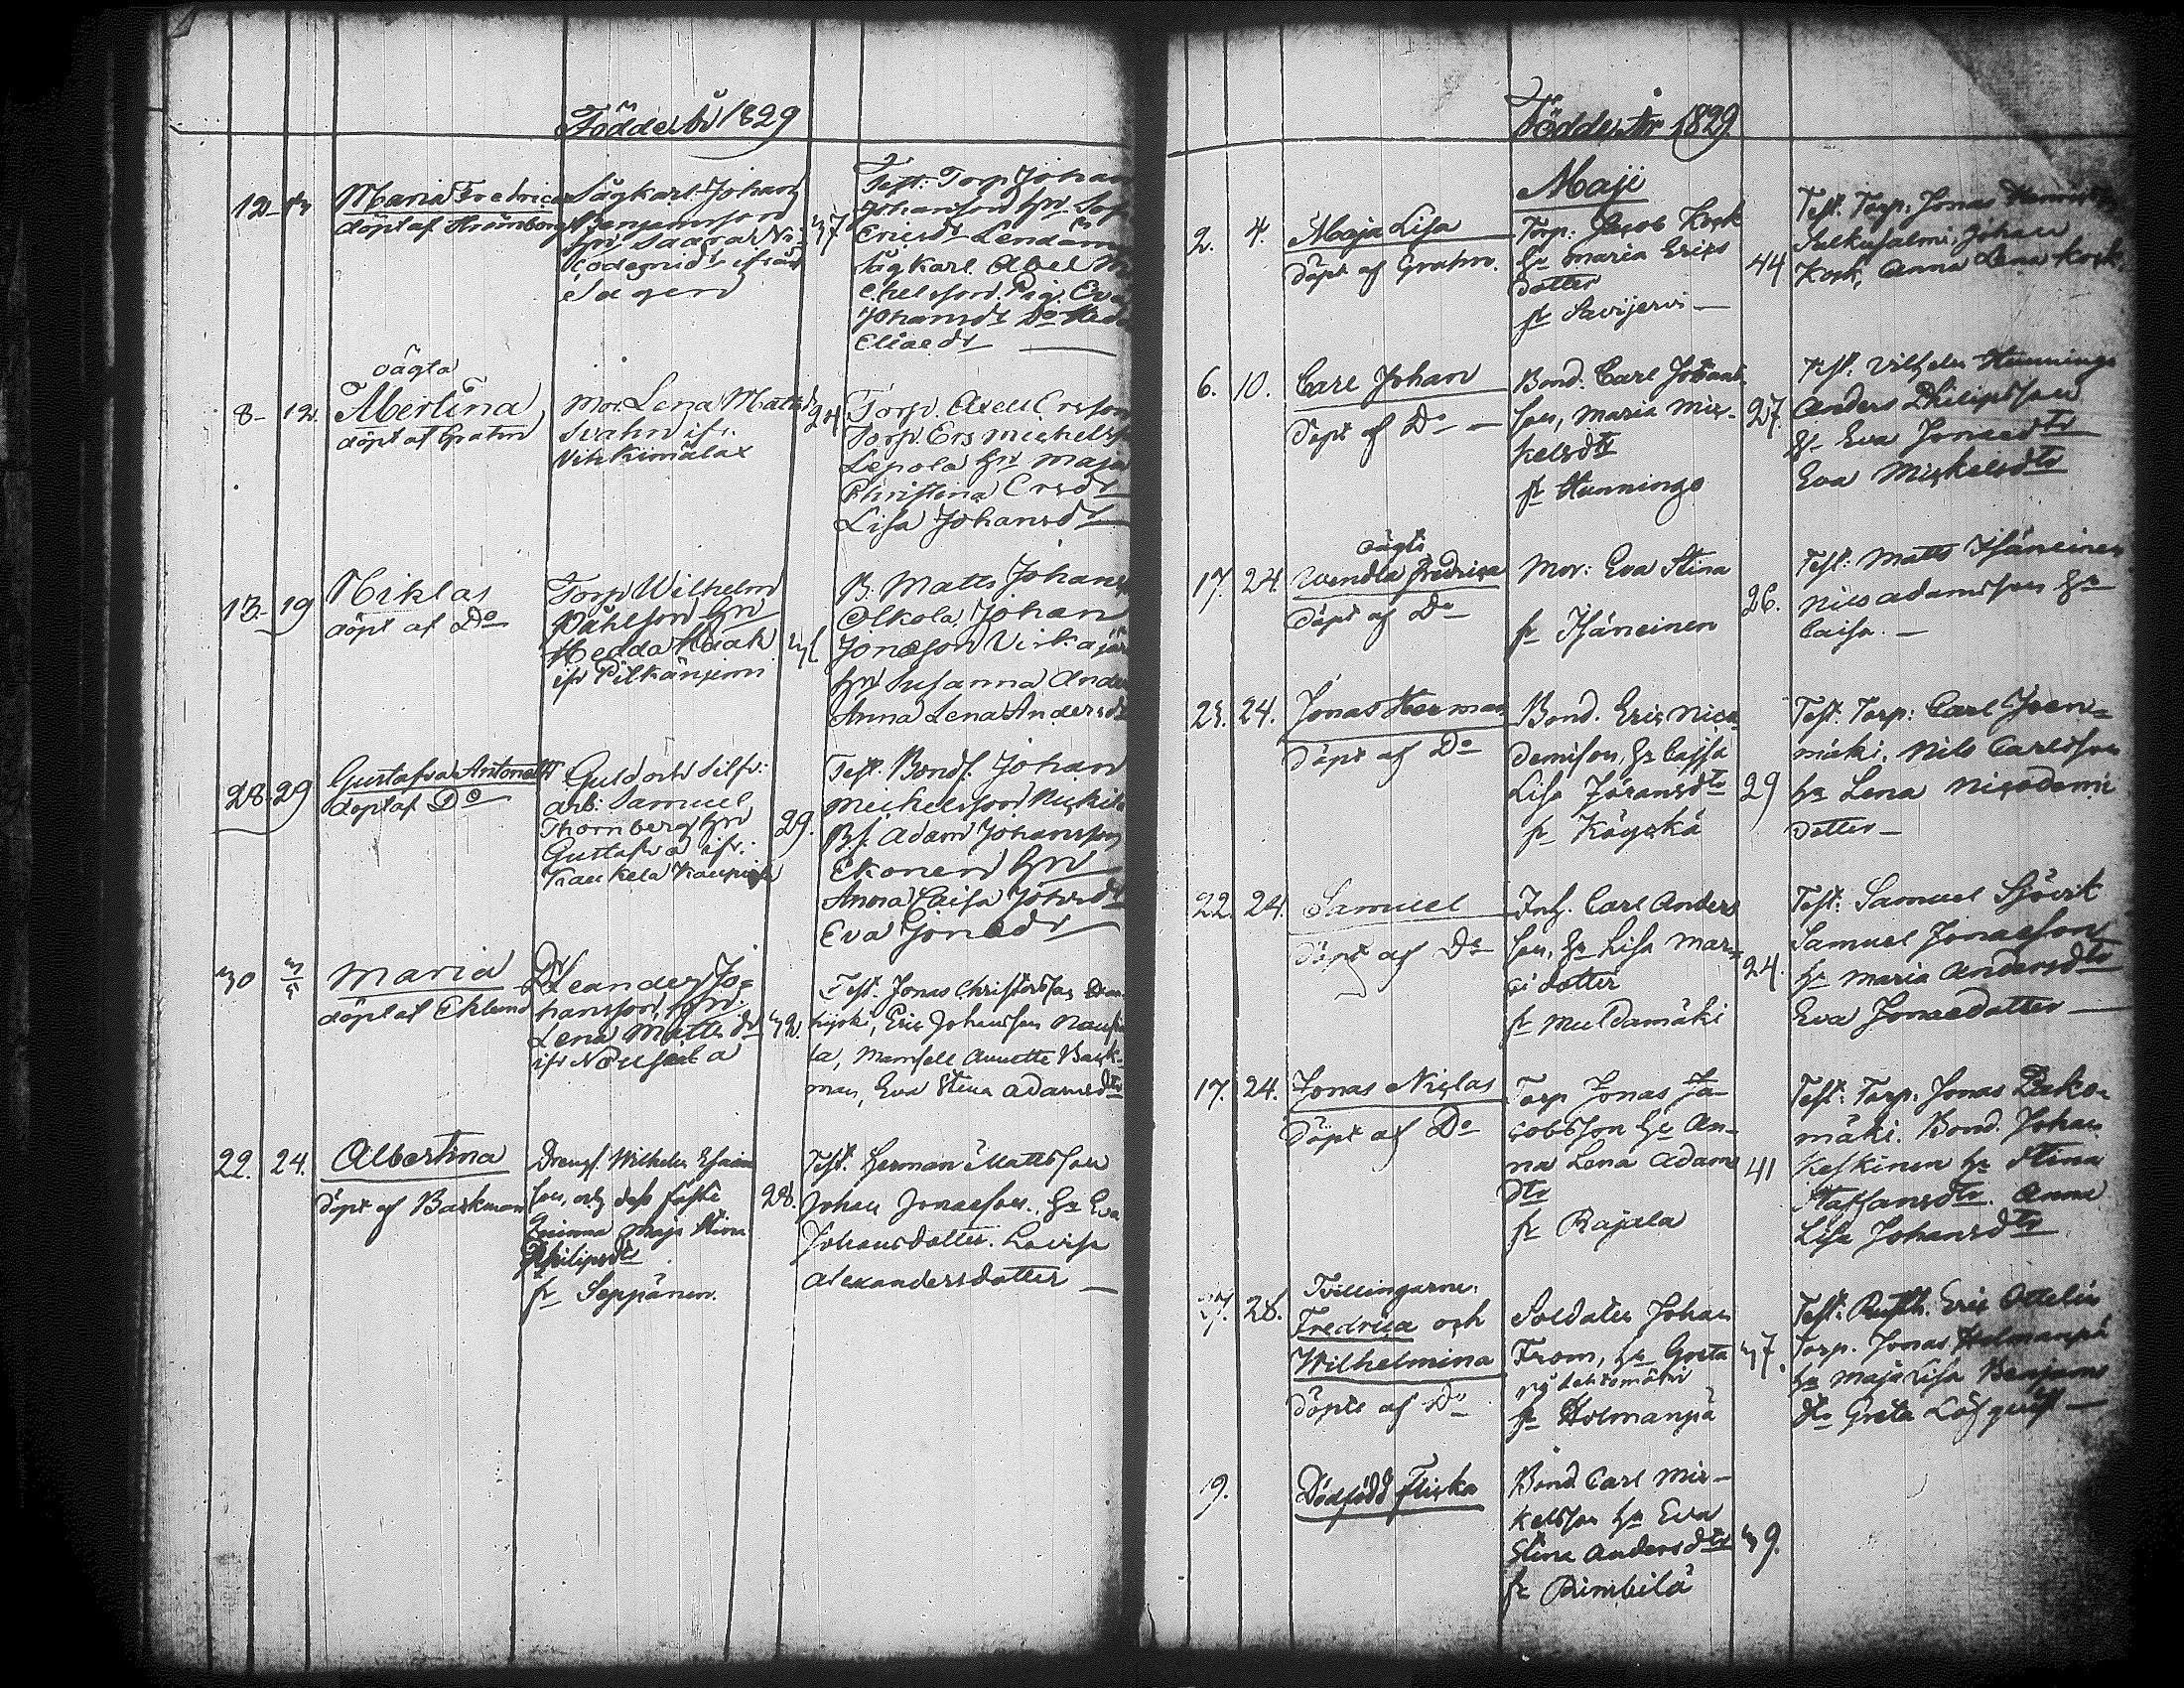 Födde År 1829
12
Maria Fredrica
döpt af Strömborg
Sågkarl Johan
Benjamsson
hu Saara Ni
codemidr ifrån
Sågen
37
Test: Torp Johan
Johansson hu Sof
Ericsdr Lendäm
Sågkarl Abel Mi
chelsson Pig. Eva
Johansdr Do Hed
Eliaedr
8 12
oägta
Albertina
döpt af Grahn
Mor. Lena Mattsd
Svahn ifr.
Vihkimälax
24
Torp. Axel Ersson
Torp. Ers Michels
Lepola hu Maja
Christina Ersdr
Lisa Johansdr
13 19
Niklas
döpt af Do
Torp Wilhelm
Påhlson hu
Hedda Isak
ifr Pitkänjemi
B. Matts Johans
Olkola, Johan
Jonasson Virkajär
hu Susanna Ander
Anna Lena Andersdr
28 29
Gustafva Antonetta
döpt af Do
Guld och Silf:
arb: Samuel
Thornberg hu
Gustafva ifr:
Kaukela Kaupinge
29.
Test. Bonds. Johan
Michelsson Nickil
Bs. Adam Johansson
Ekonen hu
Anna Caisa Johsdr
Eva Jonaedr
30 3/5
Maria
döpt af Eklund
Leander Jo=
hansson, hu.
Lena Mattsdr
ifr Nousiala
32.
Test. Jonas Christersson
Eric Johansson Nousia
la, Mamsell Annette Back
man, Eva Stina Adamsdtr
22. 24.
Albertina
döpt af Backman
Drengs. Wilhelm Esaias
son, och dess fäste
qvinna Maja Stina
Philipsdtr
fr Seppänen.
28.
Test. Herman Mattsson
Johan Jonaesson. hu Eva
Johansdotter. Lovisa
Alexandersdotter
Födde År 1829
Maji
2. 4.
Maja Lisa
döpt af Grahn.
Torp: Jacob Kock
hu Maria Erics
dotter
fr Savijervi
44
Test. Torp. Jonas
Salkusalmi, Johan
Kock, Anna Lena Kock.
6. 10.
Carl Johan
döpt af Do
Bond. Carl Johans
son, Maria Mic-
kelsdtr
fr Hunnings
27.
Test. Vilhelm Hunnings
Anders Philipsson
hu Eva Jonaedtr
Eva Mickelsdtr
17. 24.
oägta
Wendla Fredrica
döpt af Do
Mor: Eva Stina
fr Isäneinen
26.
Test: Matts Isäneinen
Nils Adamsson hu
Caisa.
21. 24.
Jonas Herman
döpt af Do
Bond. Eric Nico
demison, hu Caisa
Lisa Göransdtr
fr Käyrkä
29
Test. Torp: Carl Joen=
mäki. Nils Carlsson
hu Lena Nicodemi
dotter
22. 24.
Samuel
döpt af Do
Inh. Carl Anders
son, hu Lisa Mar=
ci dotter
fr Muldamäki
24.
Test: Samuel Sjövik
Samuel Jonaeson
hu Maria Andersdtr
Eva Jonaedotter
17. 24.
Jonas Niclas
döpt af Do
Torp Jonas Ja-
cobsson hu An-
na Lena Adams
dtr
fr Rajala
41
Test: Torp. Jonas Lako-
mäki. Bond. Johan
Keskinen hu Stina
Staffansdtr. Anna
Lisa Johansdtr
27. 28.
Tvillingarne.
Fredrica och
Wilhelmina
döpte af Do
Soldaten Johan
From, hu Greta
fr Holmanpä
37.
Test: Rusth. Eric Ottelin
Torp. Jonas Holmanpä
hu Maja Lisa Benjams
dtr Greta Löfqvist
9.
Dödfödd flicka
Bond. Carl Mic-
kelsson hu Eva
Stina Andersdtr
fr Rimbilä
39.